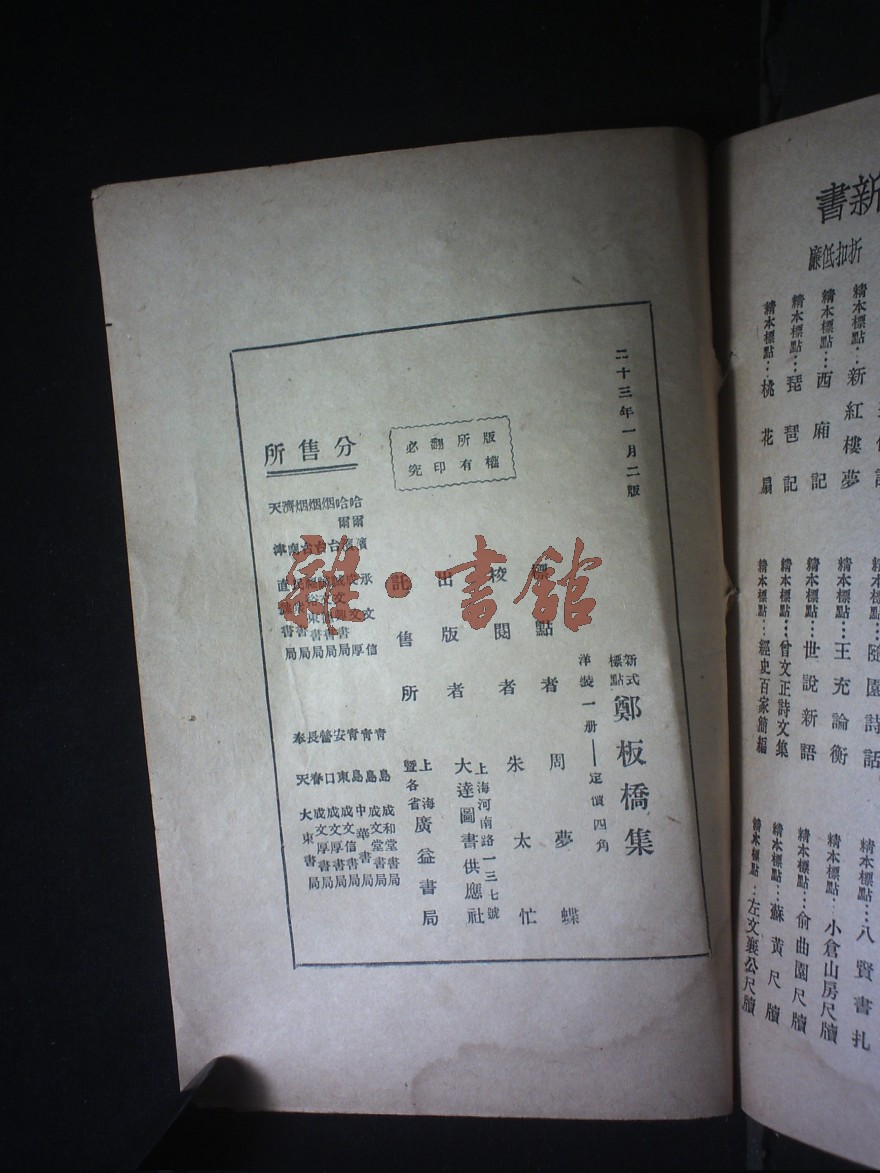 二十三年一月二版
版權所有翻印必究
新式標點 鄭板橋集
洋裝一册——定價四角
標點者 周夢蝶
校閱者 朱太忙
出版者 上海河南路一三七號 大達圖書供應社
託售所 上海暨各省 廣益書局
分售所
哈爾濱 承文信
哈爾濱
烟台
烟台
烟台
濟南
天津 直隸書局
青島 成和堂書局
青島 成文堂書局
青島 中華書局
安東 成文信書局
營口 成文厚書局
長春 成文厚書局
奉天 大東書局
新書
折扣低廉
精本標點…新紅樓夢
精本標點…西廂記
精本標點…琵琶記
精本標點…桃花扇
精本標點…隨園詩話
精本標點…王充論衡
精本標點…世說新語
精本標點…曾文正詩文集
精本標點…經史百家簡編
精本標點…八賢書扎
精本標點…小倉山房尺牘
精本標點…俞曲園尺牘
精本標點…蘇黃尺牘
精本標點…左文襄公尺牘
雜·書館